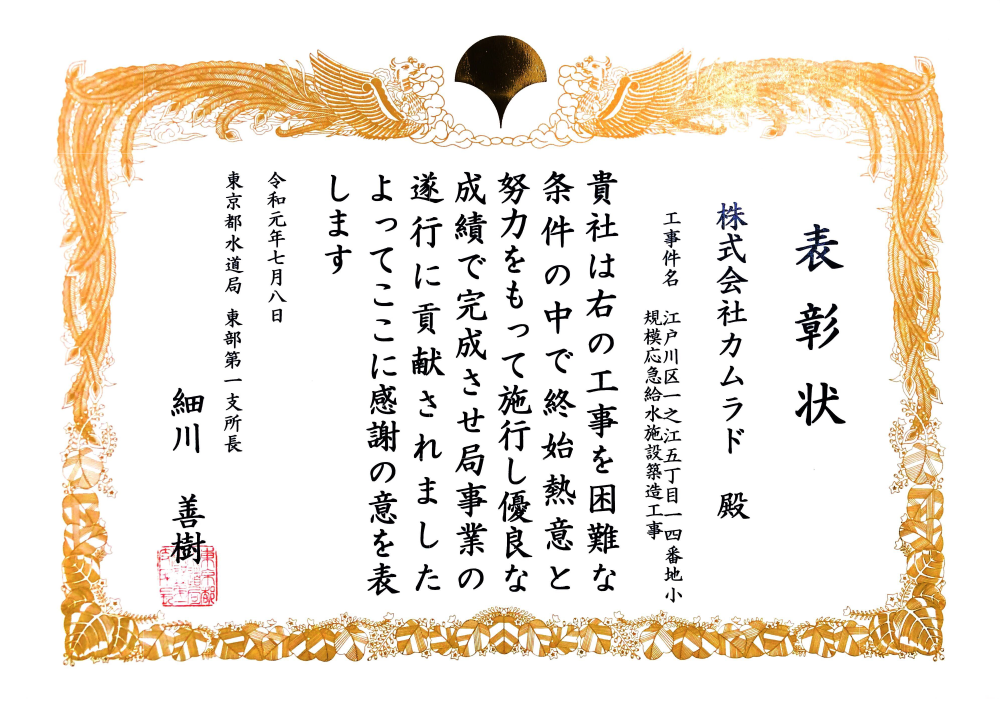 表彰状
株式会社カムラド 殿
工事件名 江戸川区一之江五丁目一四番地小
規模応急給水施設築造工事
貴社は右の工事を困難な
条件の中で終始熱意と
努力をもって施行し優良な
成績で完成させ局事業の
遂行に貢献されました
よってここに感謝の意を表
します
令和元年七月八日
東京都水道局 東部第一支所長
細川 善樹